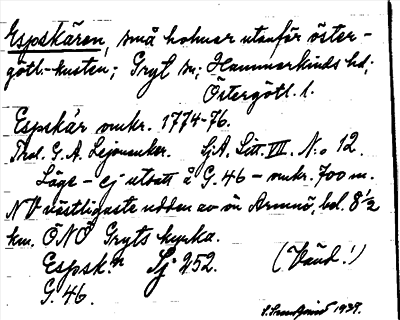 Espskären, små holmar utanför öster-
götl.-kusten; Gryt sn; Hammarkinds hd;
Östergötl. l.
Espskär omkr. 1774-76.
G. A. Sj.A. Litt. VII. No 12.
Läge - ej utsatt å G. 46 - omkr. 700 m.
NV västligaste udden av ön Armnö, bel. 8 1/2
km. ÖNÖ Gryts kyrka.
Espsk:n Sj 252. (Vänd!)
G. 46.
1937.